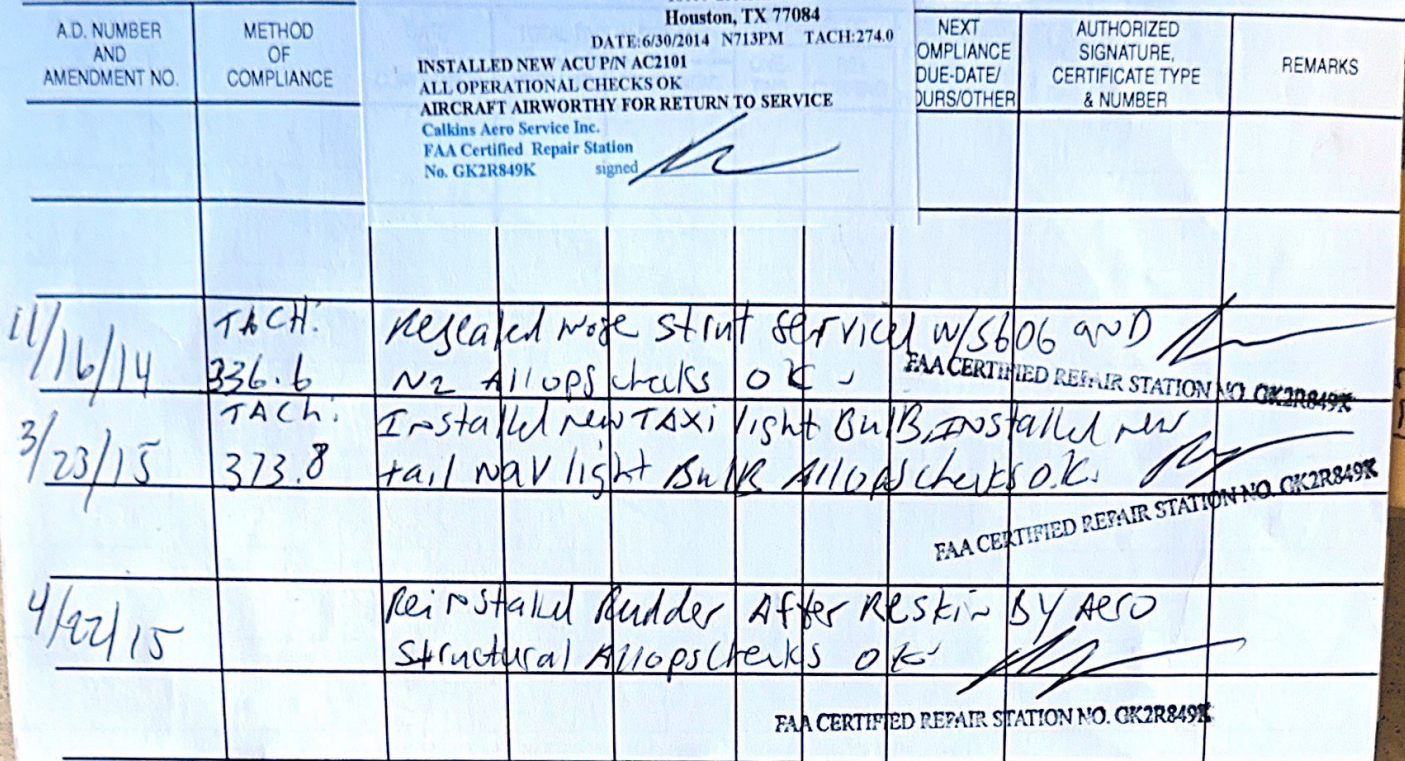 Houston, TX 77084
DATE:6/30/2014 N713PM TACH:274.0
INSTALLED NEW ACU P/N AC2101
ALL OPERATIONAL CHECKS OK
AIRCRAFT AIRWORTHY FOR RETURN TO SERVICE
Calkins Aero Service Inc.
FAA Certified Repair Station
No. GK2R849K signed
A.D. NUMBER
AND
AMENDMENT NO.
METHOD
OF
COMPLIANCE
NEXT
OMPLIANCE
DUE-DATE/
OURS/OTHER
AUTHORIZED
SIGNATURE,
CERTIFICATE TYPE
& NUMBER
REMARKS
11/16/14 TACH: 336.6
Resealed nose strut serviced w/5606 AND
N2 All ops checks OK.
FAA CERTIFIED REPAIR STATION NO. GK2R849K
3/23/15 TACH: 373.8
Installed new TAXi light BulB, INstalled new
tail NAV light BulB All ops checks O.K.
FAA CERTIFIED REPAIR STATION NO. GK2R849K
4/22/15
Reinstalled Rudder After Reskin By Aero
Structural All ops checks OK
FAA CERTIFIED REPAIR STATION NO. GK2R849K